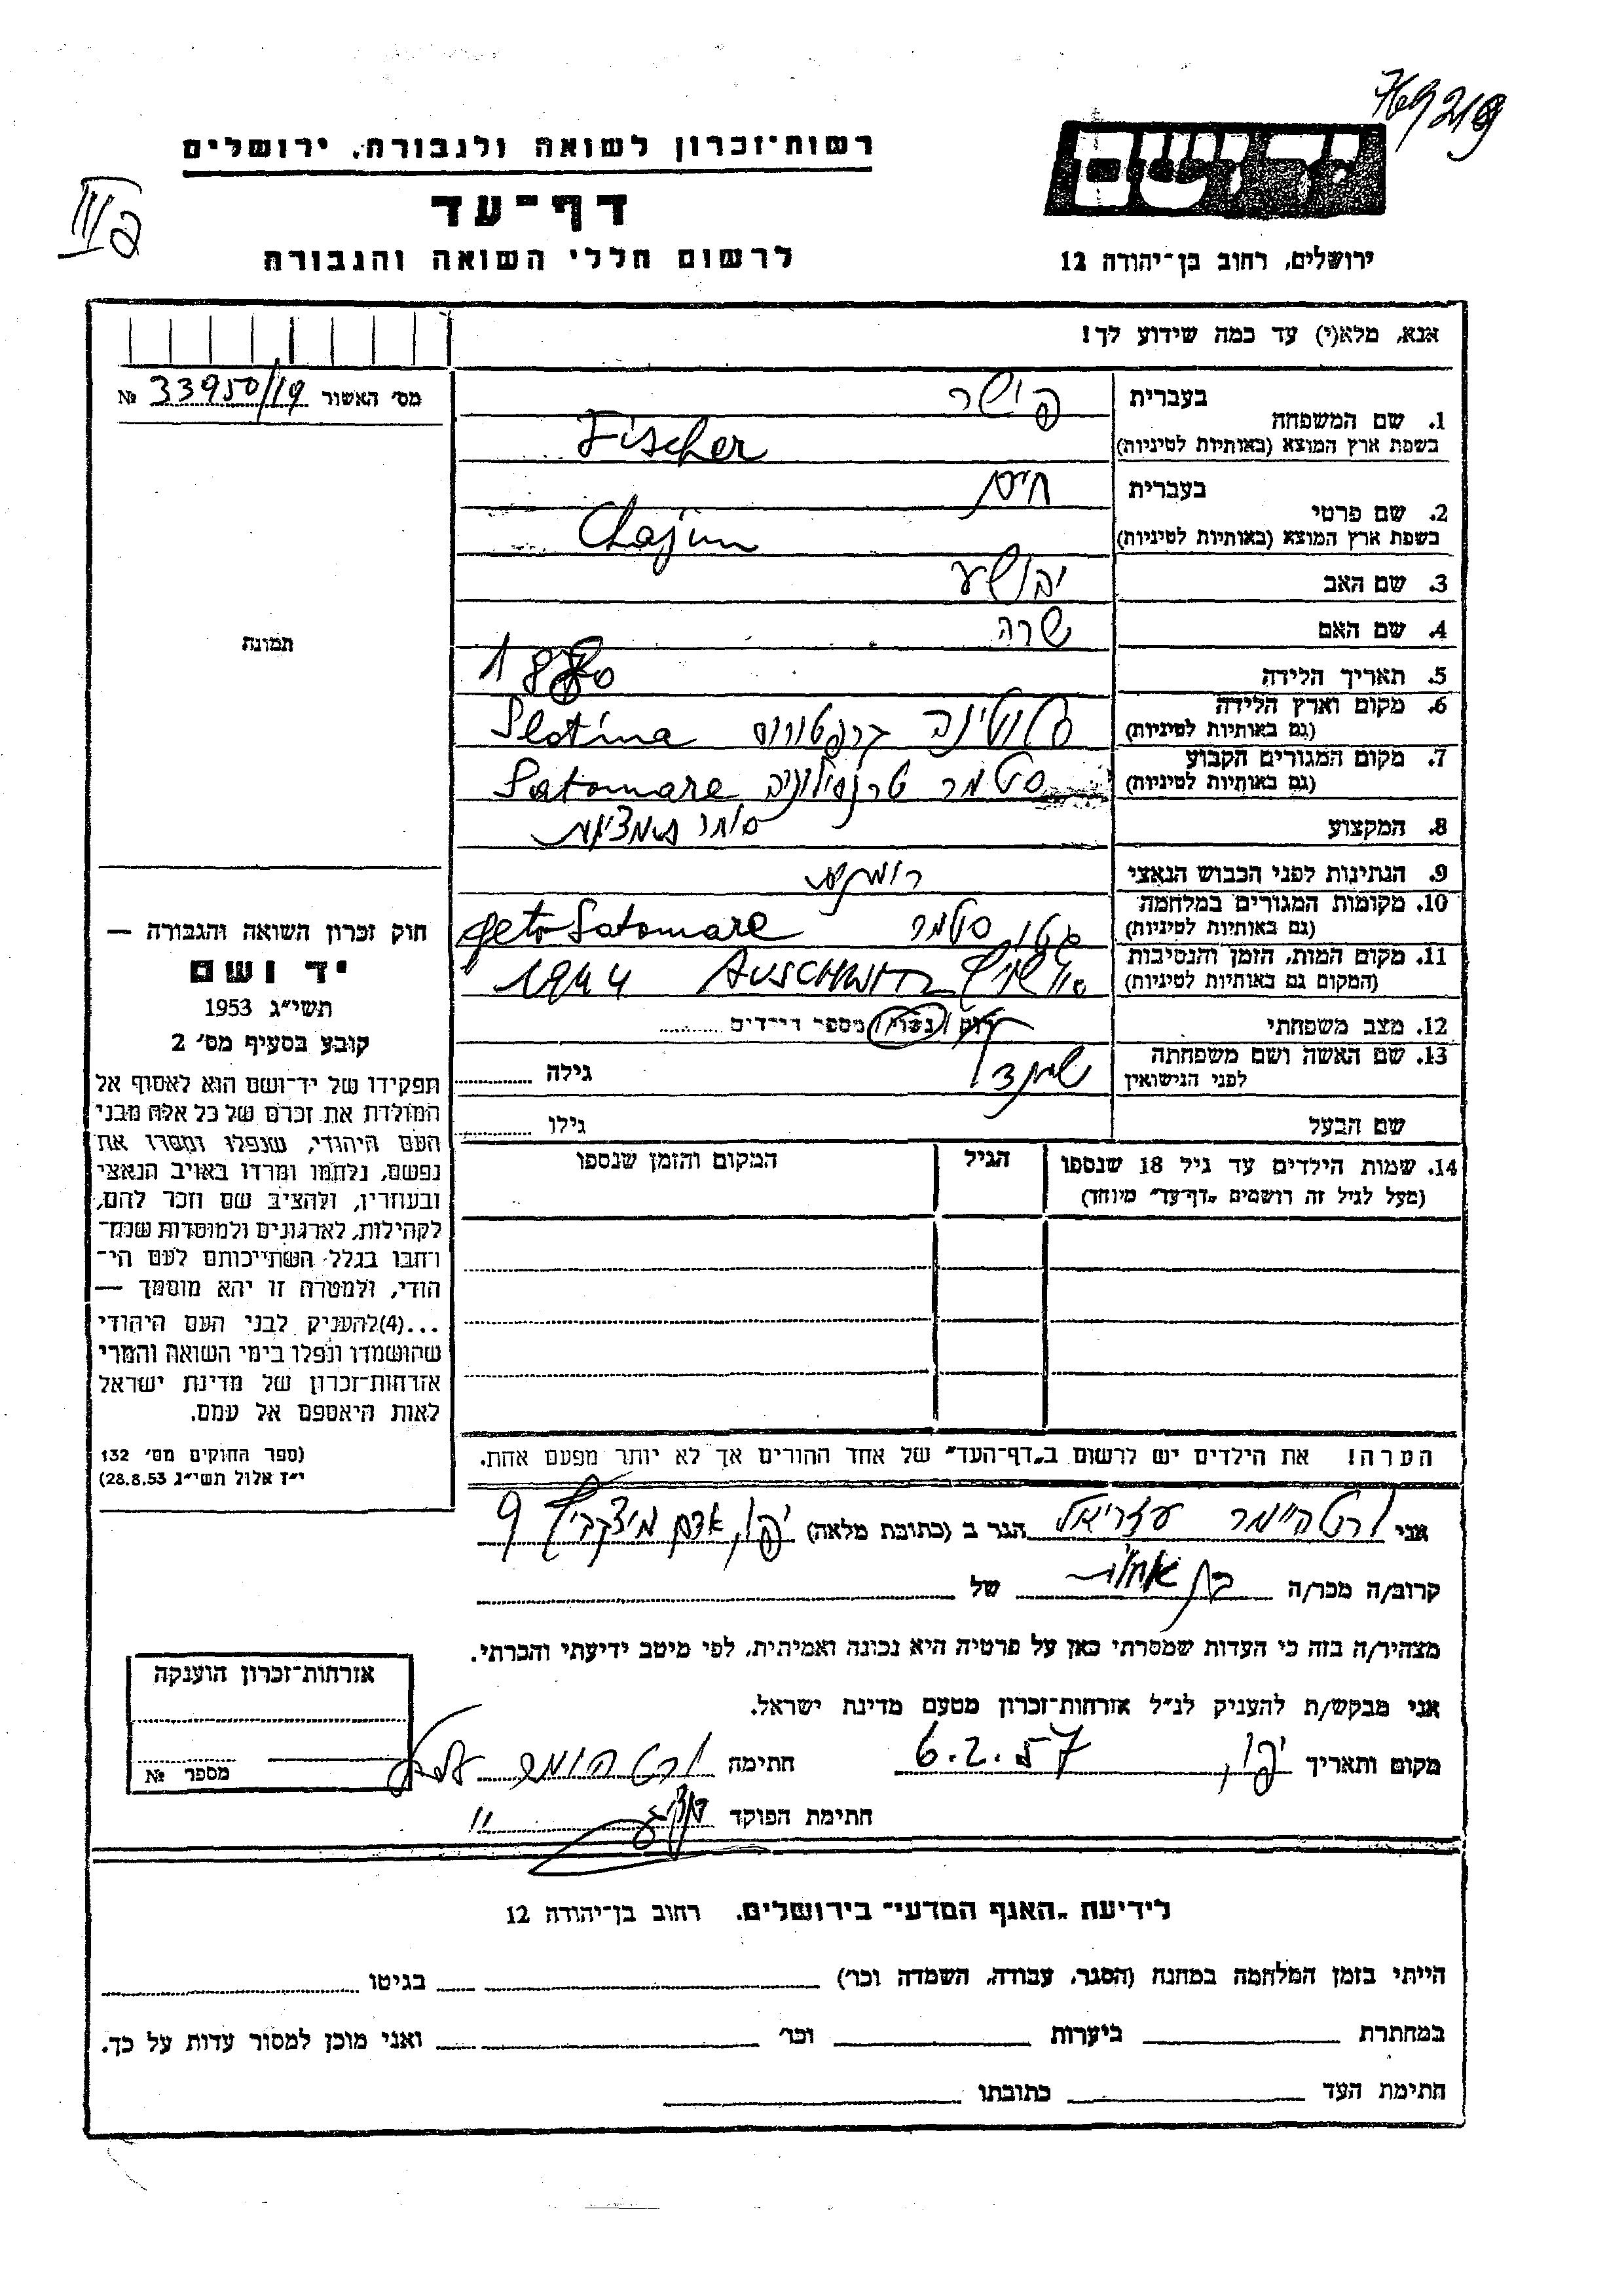 769219
רשות־זכרון לשואה ולגבורה, ירושלים
ידושם
דף־עד
לרשום חללי השואה והגבורה
ירושלים, רחוב בן־יהודה 12
אנא, מלא(י) עד כמה שידוע לך!
מס׳ האשור № 33950/19
תמונה
1. שם המשפחה
בעברית פישר
בשפת ארץ המוצא (באותיות לטיניות) Fischer
2. שם פרטי
בעברית חיים
בשפת ארץ המוצא (באותיות לטיניות) Chajim
3. שם האב יהושע
4. שם האם שרה
5. תאריך הלידה
6. מקום וארץ הלידה
(גם באותיות לטיניות) Slotina
7. מקום המגורים הקבוע
(גם באותיות לטיניות) סטמר טרנסילוניה Satomare
8. המקצוע סוחר
9. הנתינות לפני הכבוש הנאצי
10. מקומות המגורים במלחמה
(גם באותיות לטיניות) גטו סטמר geto Satomare
11. מקום המות, הזמן והנסיבות
(המקום גם באותיות לטיניות) AUSCHWITZ 1944
12. מצב משפחתי רווק / נשוי / מספר הילדים
13. שם האשה ושם משפחתה
לפני הנישואין גילה
שם הבעל גילו
14. שמות הילדים עד גיל 18 שנספו
(מעל לגיל זה רושמים „דף־עד״ מיוחד)
הגיל
המקום והזמן שנספו
חוק זכרון השואה והגבורה —
יד ושם
תשי״ג 1953
קובע בסעיף מס׳ 2
תפקידו של יד־ושם הוא לאסוף אל
המולדת את זכרם של כל אלה מבני
העם היהודי, שנפלו ומסרו את
נפשם, נלחמו ומרדו באויב הנאצי
ובעוזריו, ולהציב שם וזכר להם,
לקהילות, לארגונים ולמוסדות שנח־
רבו בגלל השתייכותם לעם הי־
הודי, ולמטרה זו יהא מוסמך —
...(4)להעניק לבני העם היהודי
שהושמדו ונפלו בימי השואה והמרי
אזרחות־זכרון של מדינת ישראל
לאות היאספם אל עמם.
(ספר החוקים מס׳ 132
י״ז אלול תשי״ג 28.8.53)
הערה! את הילדים יש לרשום ב„דף־העד״ של אחד ההורים אך לא יותר מפעם אחת.
אני ורטהיימר עזריאל הגר ב (כתובת מלאה) יפו, אדם מיצקביץ 9
קרוב/ה מכר/ה בן אחות של
מצהיר/ה בזה כי העדות שמסרתי כאן על פרטיה היא נכונה ואמיתית, לפי מיטב ידיעתי והכרתי.
אני מבקש/ת להעניק לנ״ל אזרחות־זכרון מטעם מדינת ישראל.
מקום ותאריך יפו, 6.2.57 חתימה
חתימת הפוקד
אזרחות־זכרון הוענקה
מספר №
לידיעת „האגף המדעי״ בירושלים, רחוב בן־יהודה 12
הייתי בזמן המלחמה במחנה (הסגר, עבודה, השמדה וכו׳) בגיטו
במחתרת ביערות וכו׳ ואני מוכן למסור עדות על כך.
חתימת העד כתובתו